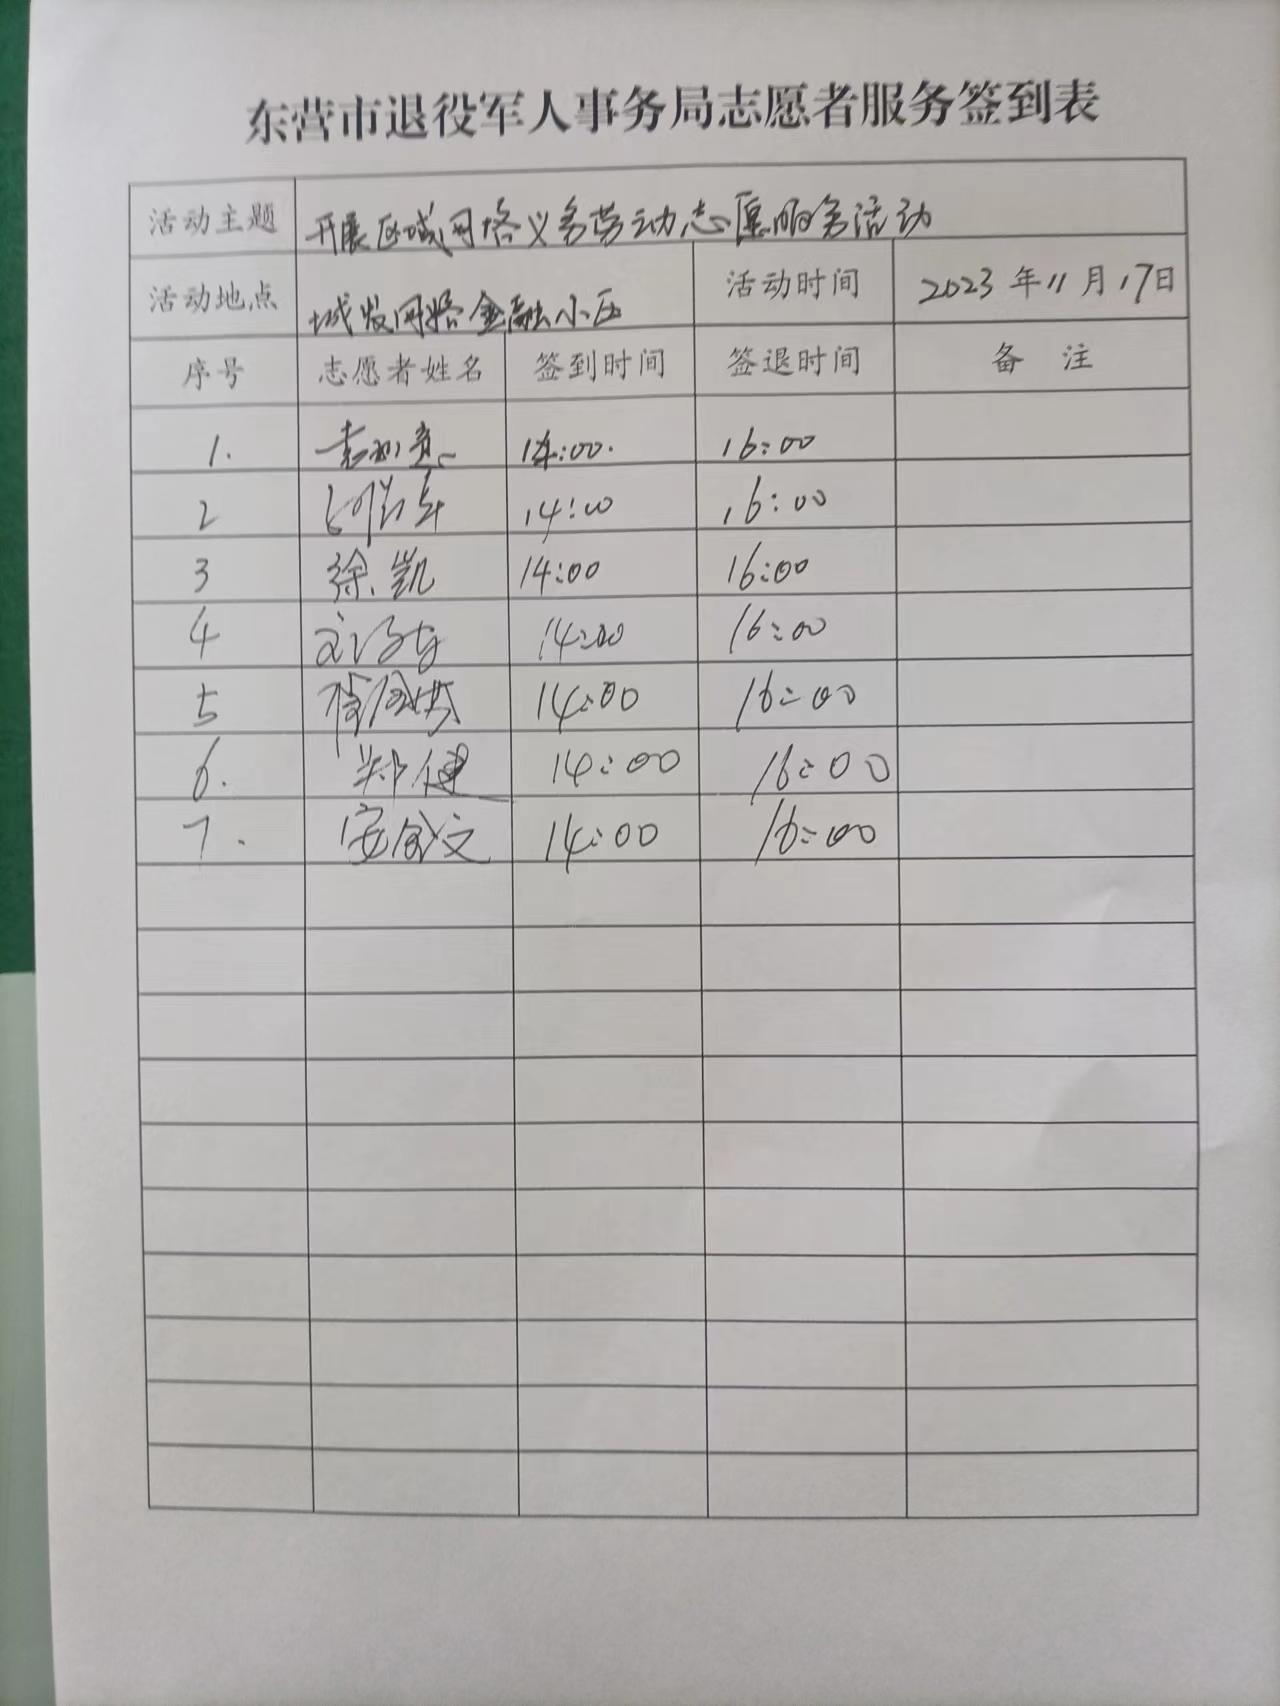 东营市退役军人事务局志愿者服务签到表
活动主题 开展区域网格义务劳动志愿服务活动
活动地点 城发网格金融小区 活动时间 2023年11月17日
序号 志愿者姓名 签到时间 签退时间 备 注
1. 14:00. 16:00
2 14:00 16:00
3 徐凯 14:00 16:00
4 14:00 16:00
5 14:00 16:00
6. 郑健 14:00 16:00
7. 安成文 14:00 16:00